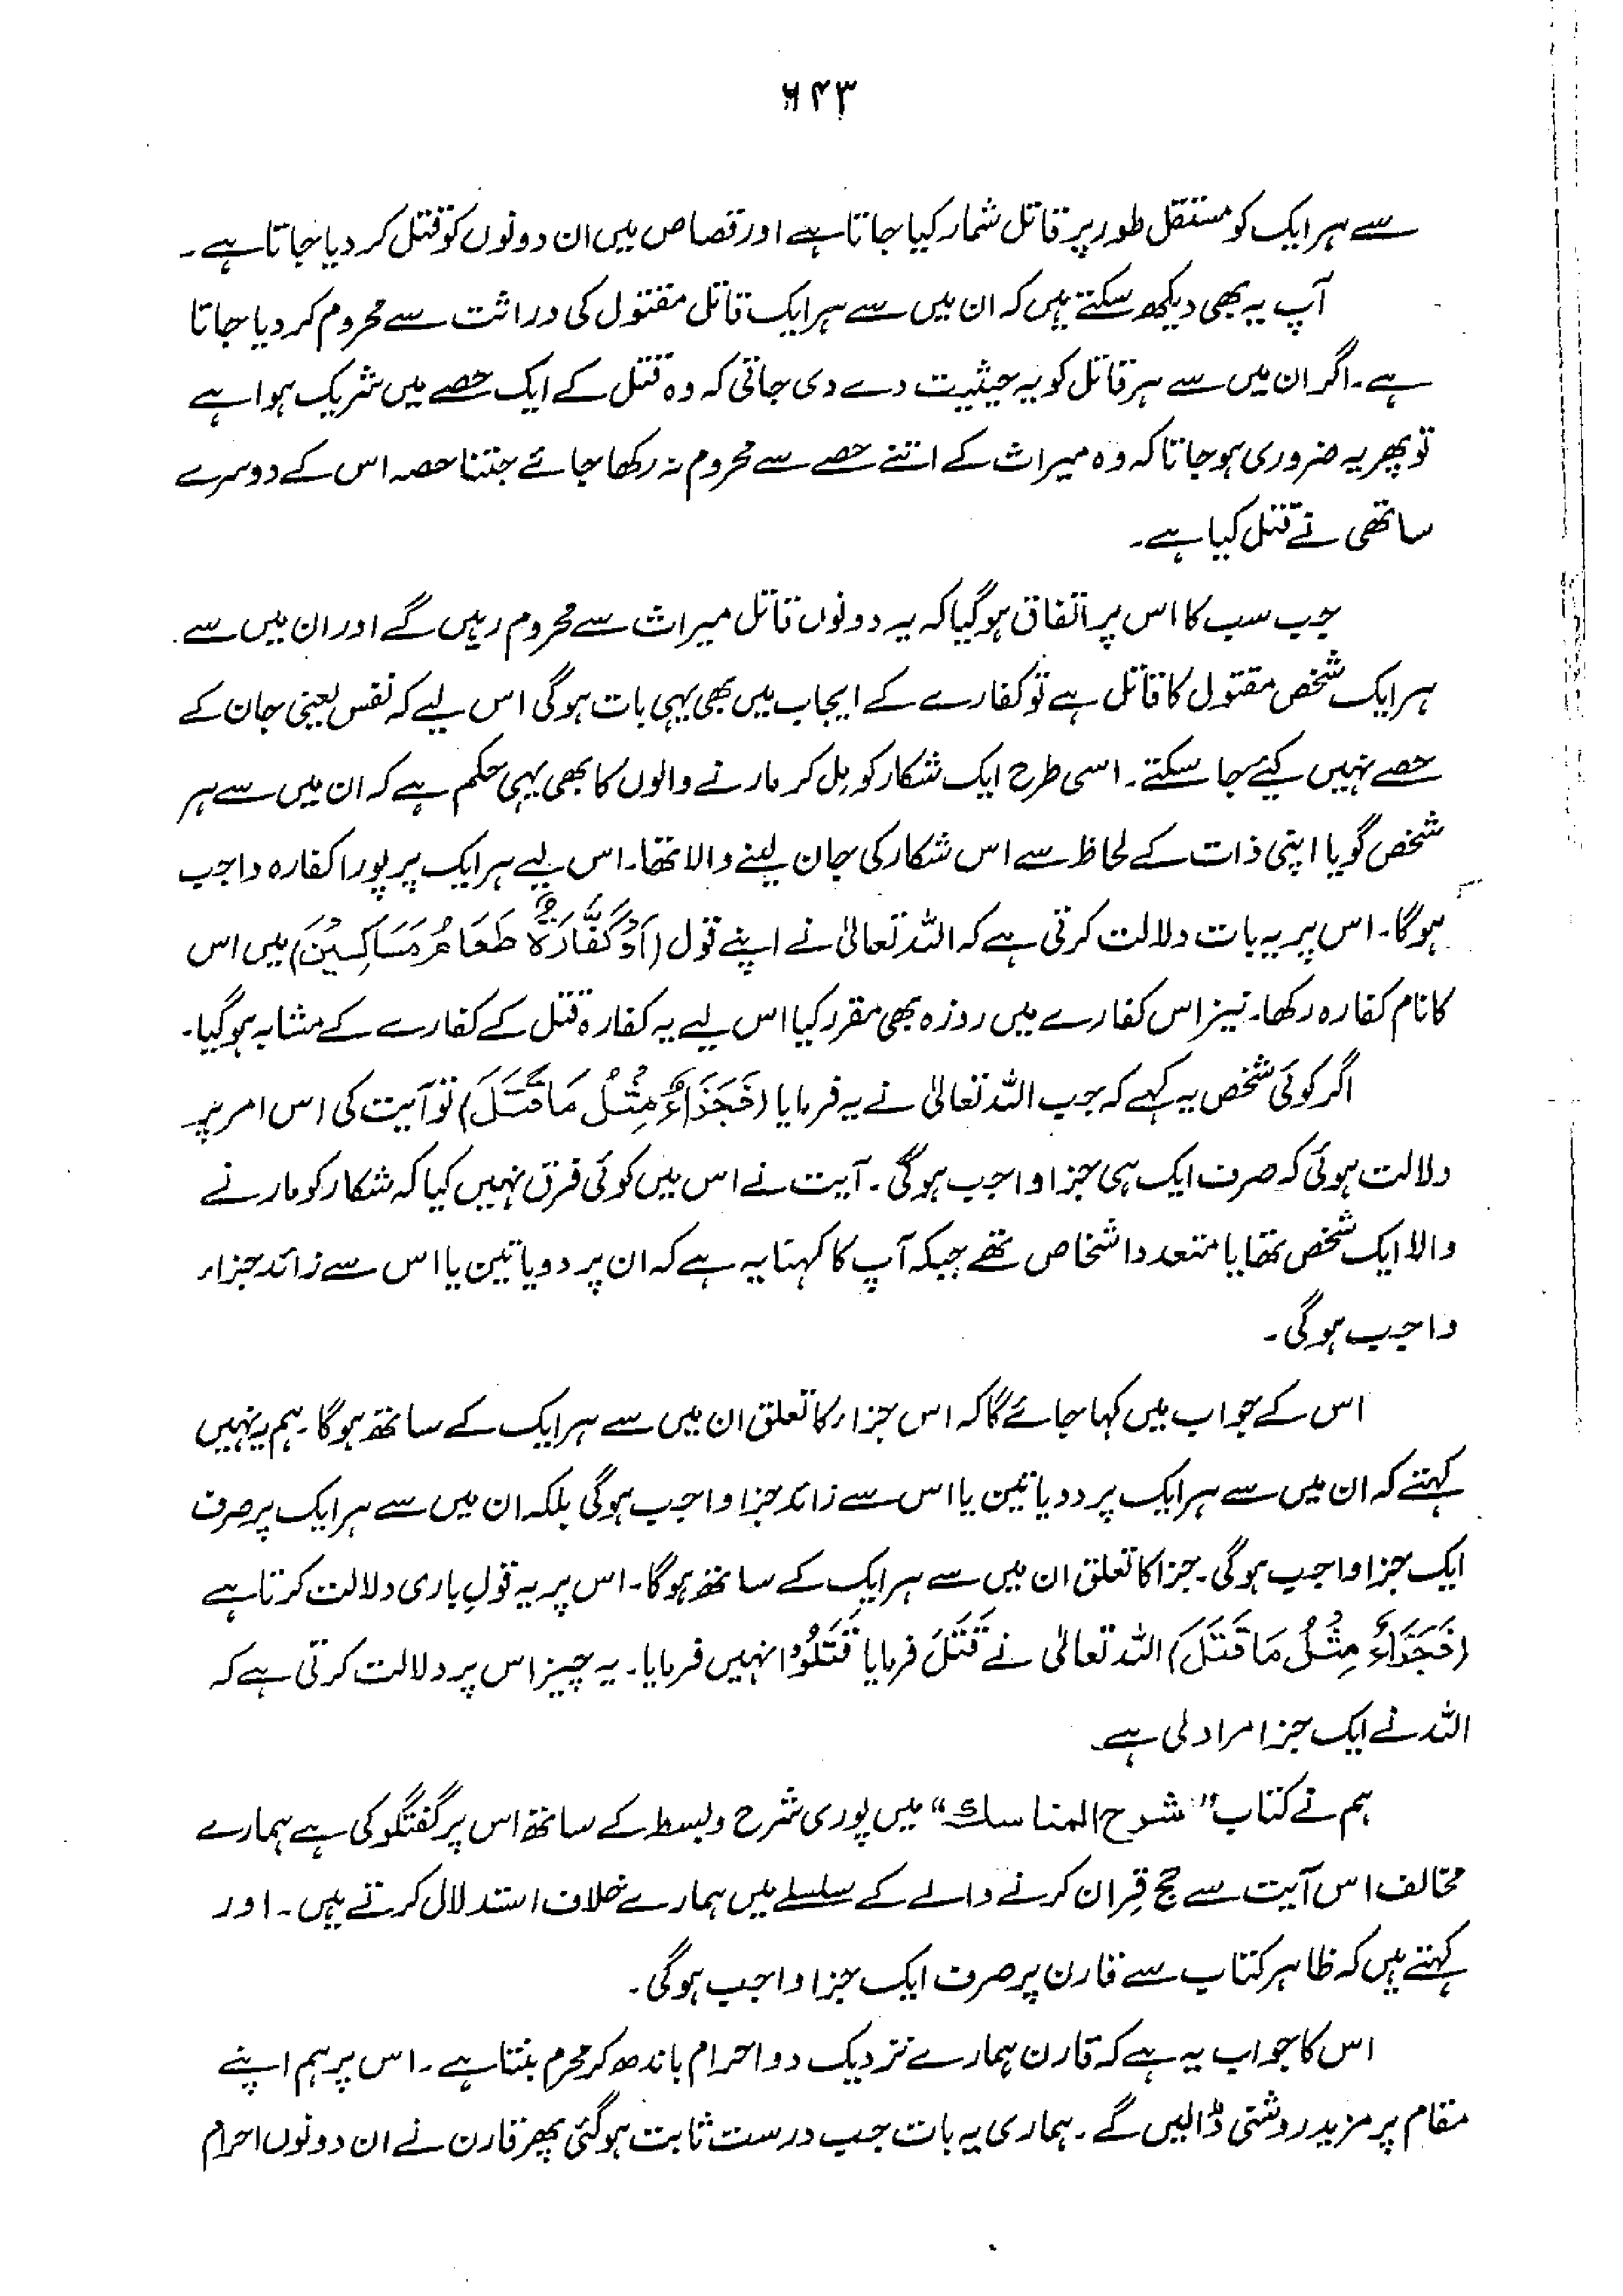 ۶۴۳
سے ہر ایک کو مستقل طور پر قاتل شمار کیا جاتا ہے اور قصاص میں ان دونوں کو قتل کر دیا جاتا ہے۔
آپ یہ بھی دیکھ سکتے ہیں کہ ان میں سے ہر ایک قاتل مقتول کی وراثت سے محروم کر دیا جاتا
ہے۔ اگر ان میں سے ہر قاتل کو یہ حیثیت دے دی جاتی کہ وہ قتل کے ایک حصے میں شریک ہوا ہے
تو پھر یہ ضروری ہو جاتا کہ وہ میراث کے اتنے حصے سے محروم نہ رکھا جائے جتنا حصہ اس کے دوسرے
ساتھی نے قتل کیا ہے۔
جب سب کا اس پر اتفاق ہو گیا کہ یہ دونوں قاتل میراث سے محروم رہیں گے اور ان میں سے
ہر ایک شخص مقتول کا قاتل ہے تو کفارے کے ایجاب میں بھی یہی بات ہو گی اس لیے کہ نفس یعنی جان کے
حصے نہیں کیئے جا سکتے۔ اسی طرح ایک شکار کو مل کر مارنے والوں کا بھی یہی حکم ہے کہ ان میں سے ہر
شخص گویا اپنی ذات کے لحاظ سے اس شکار کی جان لینے والا تھا۔ اس لیے ہر ایک پر پورا کفارہ واجب
ہوگا۔ اس پر یہ بات دلالت کرتی ہے کہ اللہ تعالیٰ نے اپنے قول (اَوْ كَفَّارَةٌ طَعَامُ مَسَاكِيْنَ) میں اس
کا نام کفارہ رکھا۔ نیز اس کفارے میں روزہ بھی مقرر کیا اس لیے یہ کفارہ قتل کے کفارے کے مشابہ ہو گیا۔
اگر کوئی شخص یہ کہے کہ جب اللہ تعالیٰ نے یہ فرمایا (فَجَزَاءٌ مِثْلُ مَا قَتَلَ) تو آیت کی اس امر پر
دلالت ہوئی کہ صرف ایک ہی جزا واجب ہو گی۔ آیت نے اس میں کوئی فرق نہیں کیا کہ شکار کو مارنے
والا ایک شخص تھا یا متعدد اشخاص تھے جبکہ آپ کا کہنا یہ ہے کہ ان پر دو یا تین یا اس سے زائد جزاء
واجب ہو گی۔
اس کے جواب میں کہا جائے گا کہ اس جزاء کا تعلق ان میں سے ہر ایک کے ساتھ ہوگا۔ ہم یہ نہیں
کہتے کہ ان میں سے ہر ایک پر دو یا تین یا اس سے زائد جزا واجب ہو گی بلکہ ان میں سے ہر ایک پر صرف
ایک جزا واجب ہو گی۔ جزا کا تعلق ان میں سے ہر ایک کے ساتھ ہوگا۔ اس پر یہ قولِ باری دلالت کرتا ہے
(فَجَزَاءٌ مِثْلُ مَا قَتَلَ) اللہ تعالیٰ نے قَتَلَ فرمایا قَتَلُوْا نہیں فرمایا۔ یہ چیز اس پر دلالت کرتی ہے کہ
اللہ نے ایک جزا مراد لی ہے۔
ہم نے کتاب "شرح المناسك" میں پوری شرح و بسط کے ساتھ اس پر گفتگو کی ہے ہمارے
مخالف اس آیت سے حج قِران کرنے والے کے سلسلے میں ہمارے خلاف استدلال کرتے ہیں۔ اور
کہتے ہیں کہ ظاہر کتاب سے قارن پر صرف ایک جزا واجب ہو گی۔
اس کا جواب یہ ہے کہ قارن ہمارے نزدیک دو احرام باندھ کر محرم بنتا ہے۔ اس پر ہم اپنے
مقام پر مزید روشنی ڈالیں گے۔ ہماری یہ بات جب درست ثابت ہو گئی پھر قارن نے ان دونوں احرام